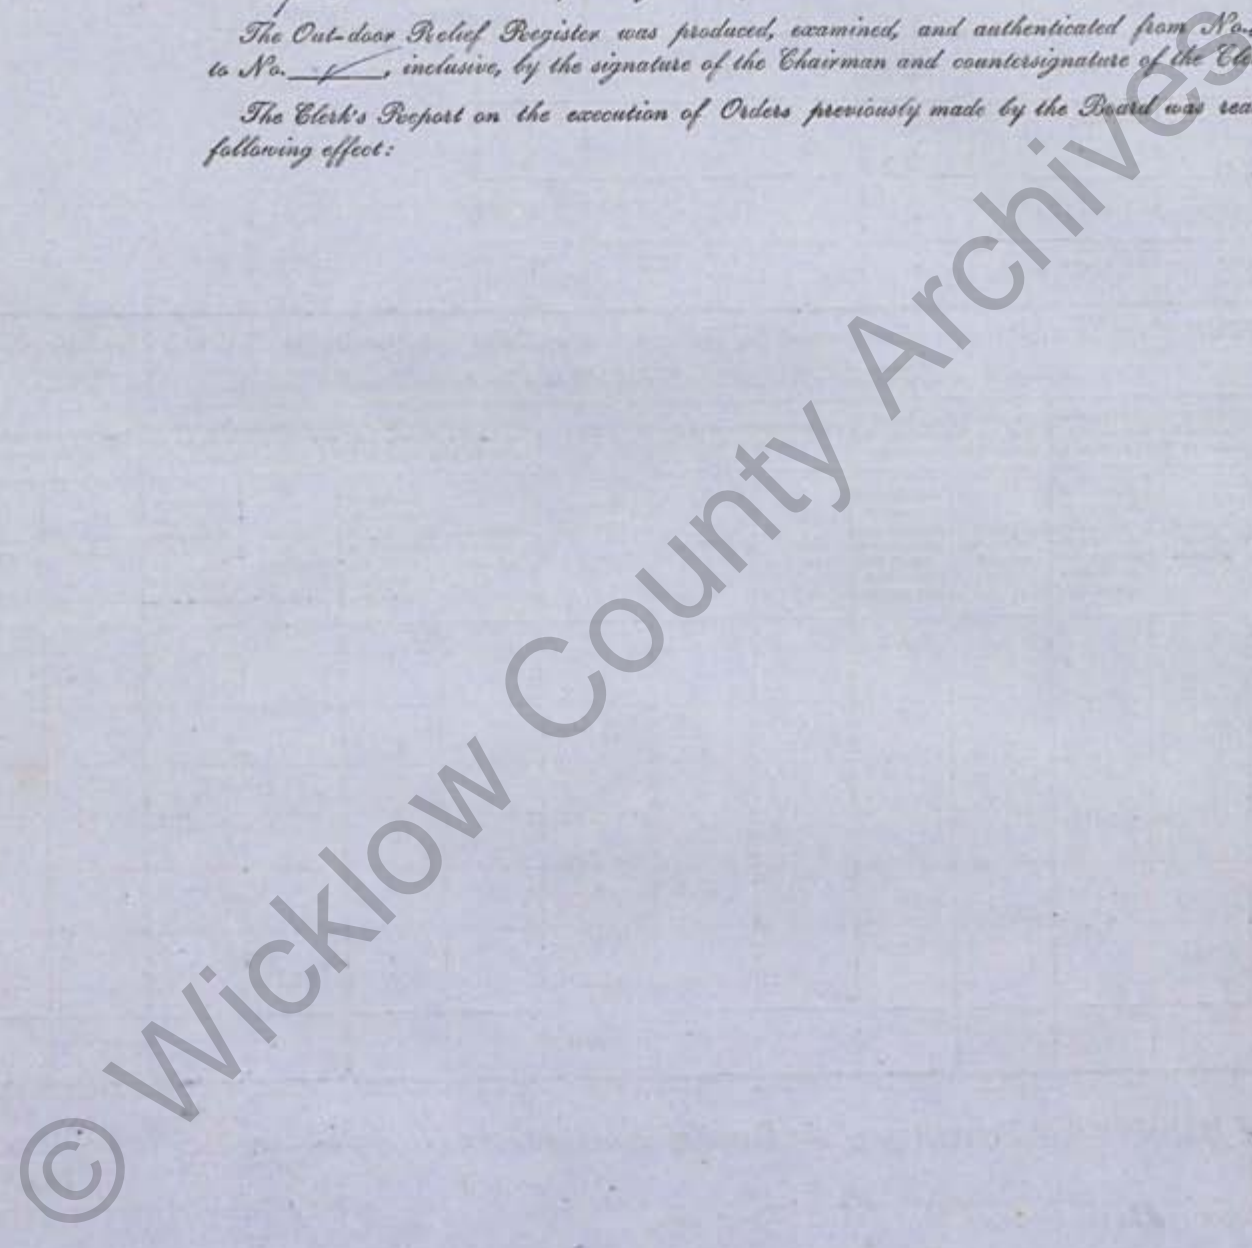 The Out-door Relief Register was produced, examined, and authenticated from No.
to No. , inclusive, by the signature of the Chairman and countersignature of the Cle
The Clerk's Report on the execution of Orders previously made by the Board was rea
following effect:
© Wicklow County Archives